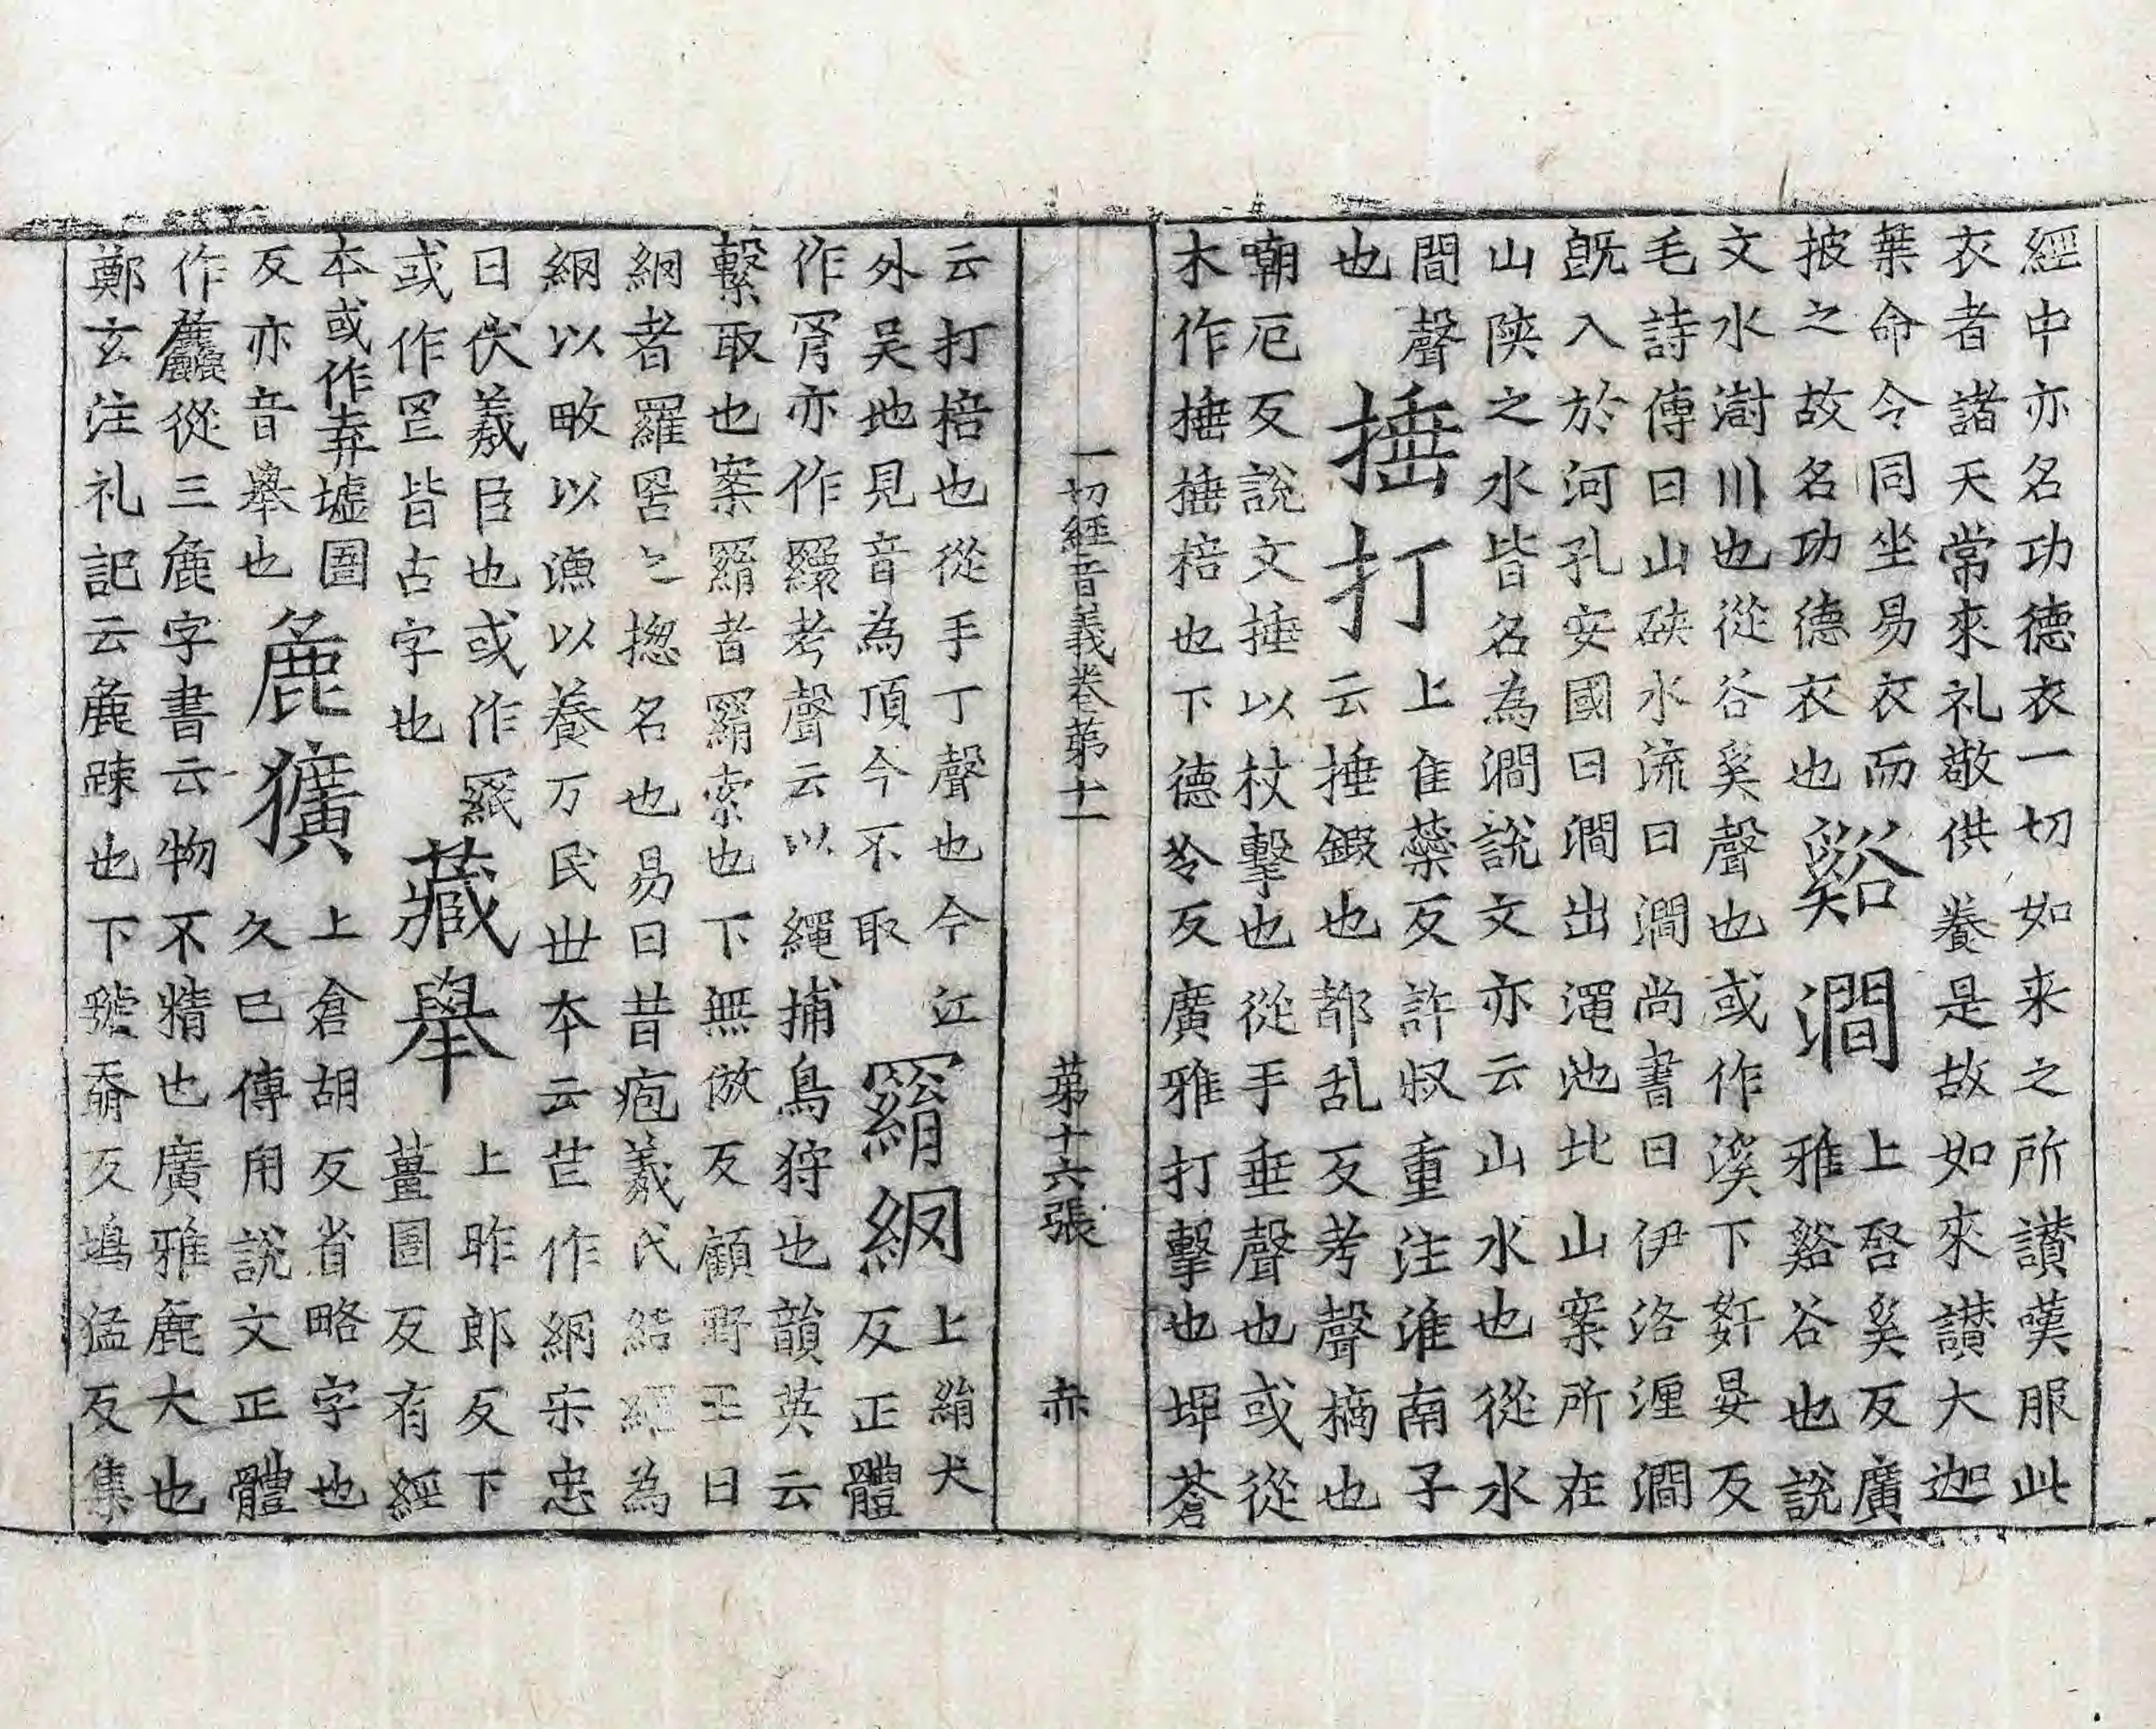 經中亦名功德衣一切如来之所讃嘆服此
衣者諸天常來礼敬供養是故如來讃大迦
葉命令同坐易衣而
披之故名功德衣也
谿澗
上啓奚反廣
雅谿谷也說
文水澍川也從谷奚聲也或作溪下姧晏反
毛詩傳曰山硤水流曰澗尚書曰伊洛瀍澗
旣入於河孔安國曰澗出澠池北山案所在
山陝之水皆名為澗說文亦云山水也從水
間聲
也
捶打
上隹蘂反許叔重注淮南子
云捶鍛也鄀乱反考聲摘也
嘲厄反說文捶以杖擊也從手垂聲也或從
木作棰棰棓也下德冷反廣雅打擊也埤蒼
一切經音義卷苐十一 苐十六張 赤
云打棓也從手丁聲也今江
外吴地見音為頂今不取
羂網
上絹犬
反正體
作罥亦作繯考聲云以繩捕鳥狩也韻英云
繫取也案羂者羂索也下無倣反顧野王曰
網者羅罟之揔名也易曰昔疱羲氏結繩為
網以畋以漁以養万民世本云芒作網宋忠
曰伏羲臣也或作
或作𦉯皆古字也
藏舉
上昨郎反下
薑圄反有經
本或作弆墟圄
反亦音舉也
麁獷
上倉胡反省略字也
久巳傳用說文正體
作麤從三鹿字書云物不精也廣雅麁大也
鄭玄注礼記云麁踈也下虢反鳩猛反集